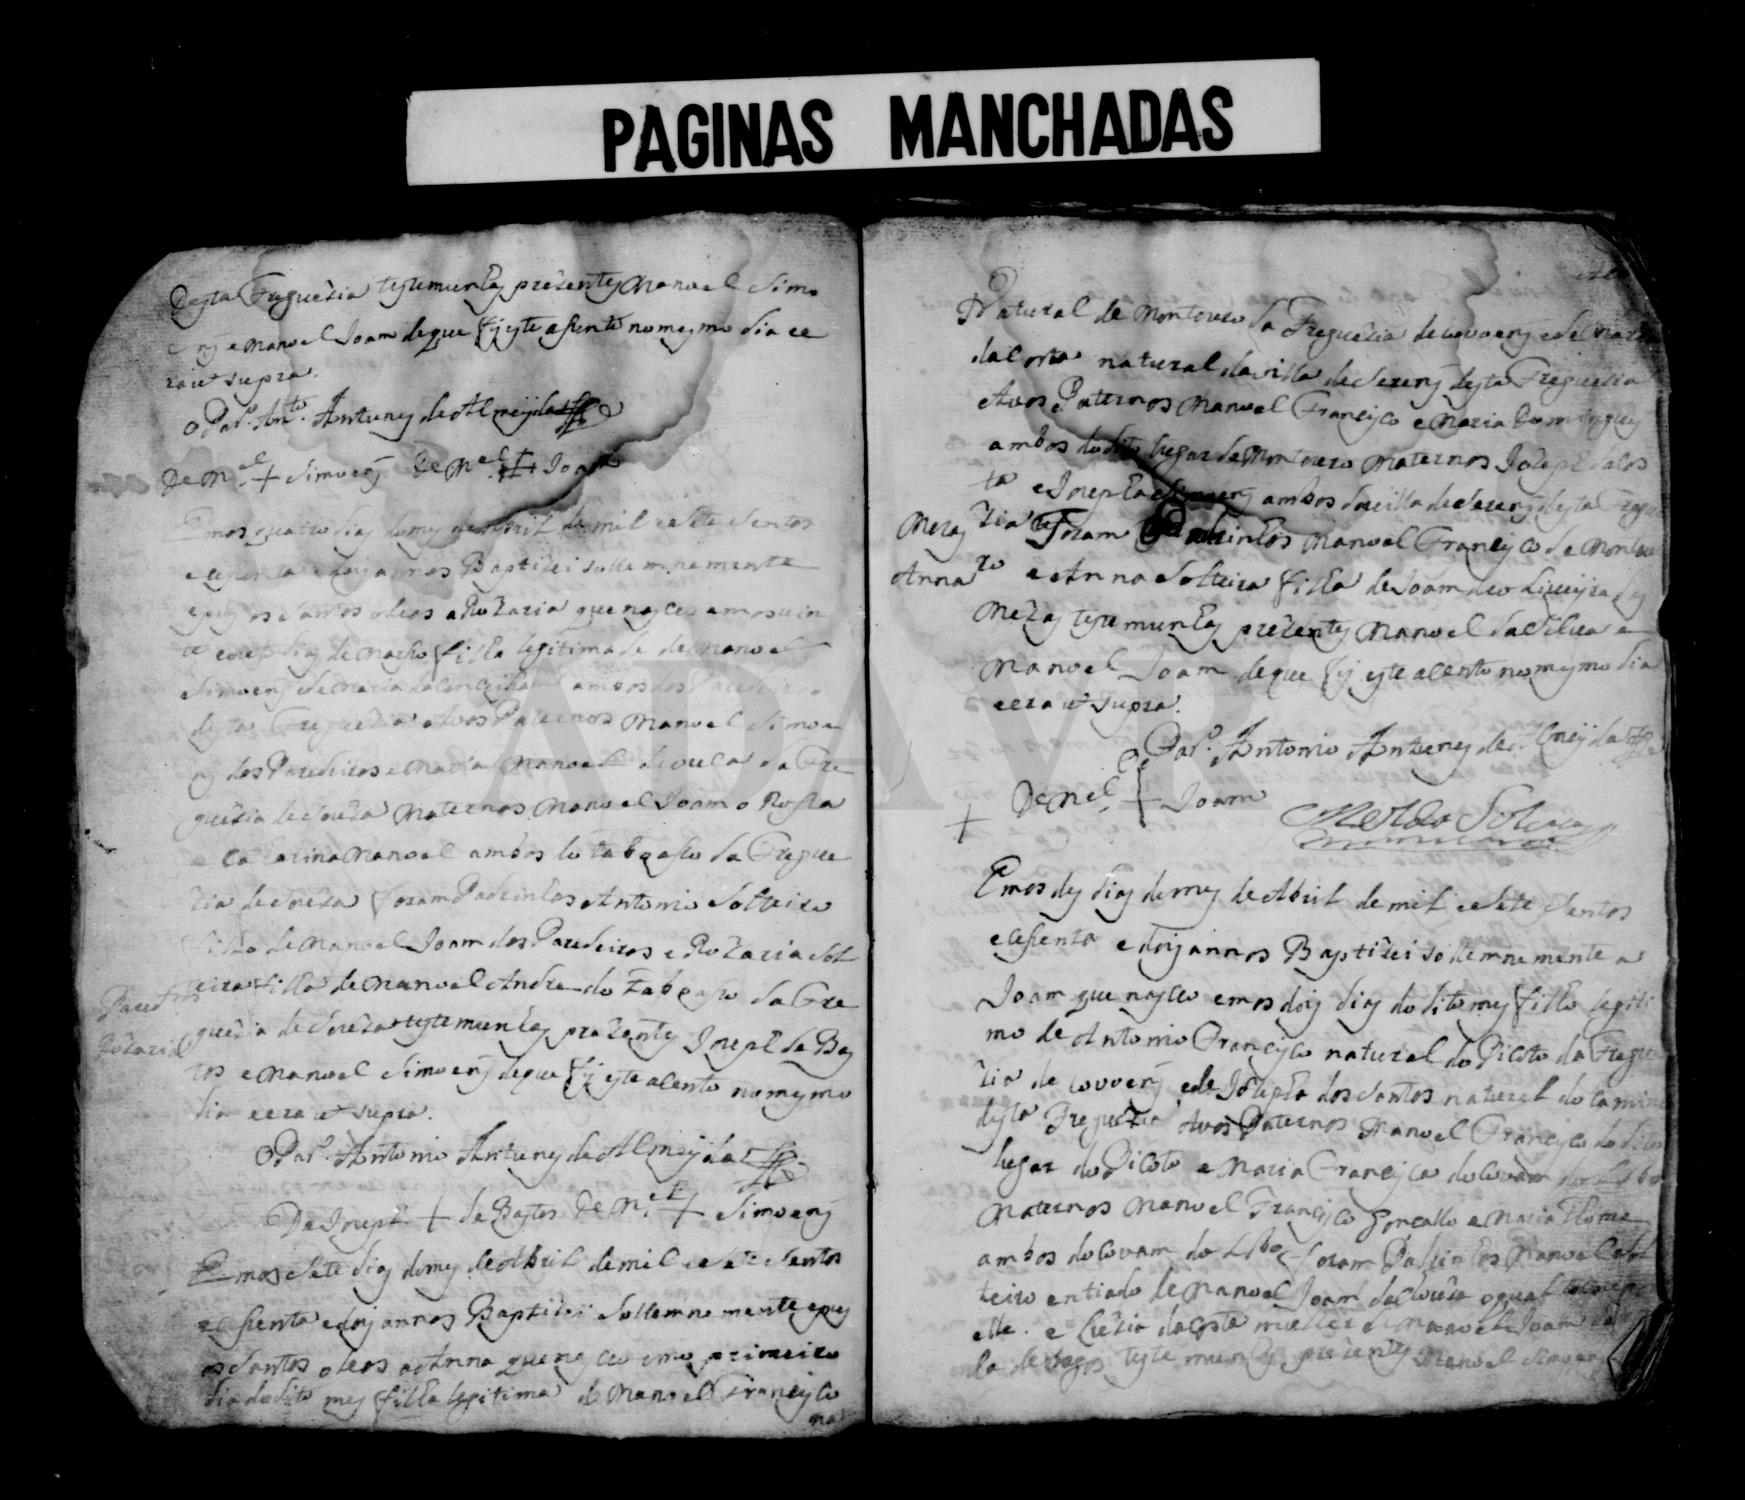 PAGINAS MANCHADAS
Desta Freguezia testemunhas prezentes Manoel Simo
ens e Manoel Joam de que fis este asento no mesmo dia ee
ra ut supra.
O Par.º Ant.º Antunes de Almeijda
De M.el + Simoens De M.el + Joam
Emos quatro dias do mes de Abril de mil e sete sentos
e cesenta e dois annos Baptizei sollemnemente
e pus os santos oleos a Rozaria que nasceo emos vin
te e sete dias de Marso filha legitima de Manoel
Simoens e de Maria da Conceisam ambos dos Paredeiros
desta Freguezia Avos Paternos Manoel Simoe
ns dos Paredeiros e Maria Manoel de da Fre
guezia de Soeza Maternos Manoel Joam o Rosha
e Catarina Manoel ambos do taboaso da Fregue
zia de Soeza foram Padrinhos Antonio Solteiro
filho de Manoel Joam dos Paredeiros e Rozaria Sol
teira filha de Manoel Andre do Taboaso da Fre
guezia de Soeza testemunhas prezentes Joseph de Bas
tos e Manoel Simoens de que fis este asento no mesmo
dia e era ut supra.
O Par.º Antonio Antunes de Almeijda
De Joseph + de Bastos De M.el + Simoens
Emos sete dias do mes de Abril de mil e sete sentos
e cesenta e dois annos Baptizei Sollemne mente e pus
os santos oleos a Anna que nasceo emo primeiro
dia do dito mes filha legitima de Manoel Francisco
na
Rozaria
Natural de Montouro da Freguezia de Covoens e de Maria
da Costa natural da villa de Serens desta Freguezia
Avos Paternos Manoel Francisco e Maria Domingues
ambos do dito lugar de Montouro Maternos Joseph da Cos
ta e Josepha Simoens ambos da villa de Serens desta Fregue
zia Foram Padrinhos Manoel Francisco de Montou
ro e Anna Solteira filha de Joam de Oliveijra das
Mezas testemunhas prezentes Manoel da Silva e
Manoel Joam de que fis este asento no mesmo dia
e era ut supra.
Mezas
Anna
O Par.º Antonio Antunes de Almeijda
De M.el + Joam
+
Emos des dias do mes de Abril de mil e sete sentos
e cesenta e dois annos Baptizei sollemnemente a
Joam que nasceo emos dois dias do dito mes filho legiti
mo de Antonio Francisco natural do Picoto da Fregue
zia de Covoens e de Josepha dos Santos natural do
desta Freguezia Avos Paternos Manoel Francisco do dito
lugar do Picoto e Maria Francisca do Covam do Lobo
Maternos Manoel Francisco Goncallo e Maria Thome
ambos do Covam do Lobo foram Padrinhos Manoel Sol
teiro entiado de Manoel Joam de Soeza o qual
elle. e Luzia da Costa mulher de Manoel Joam
testemunhas prezentes Manoel Simoens
ADAVR